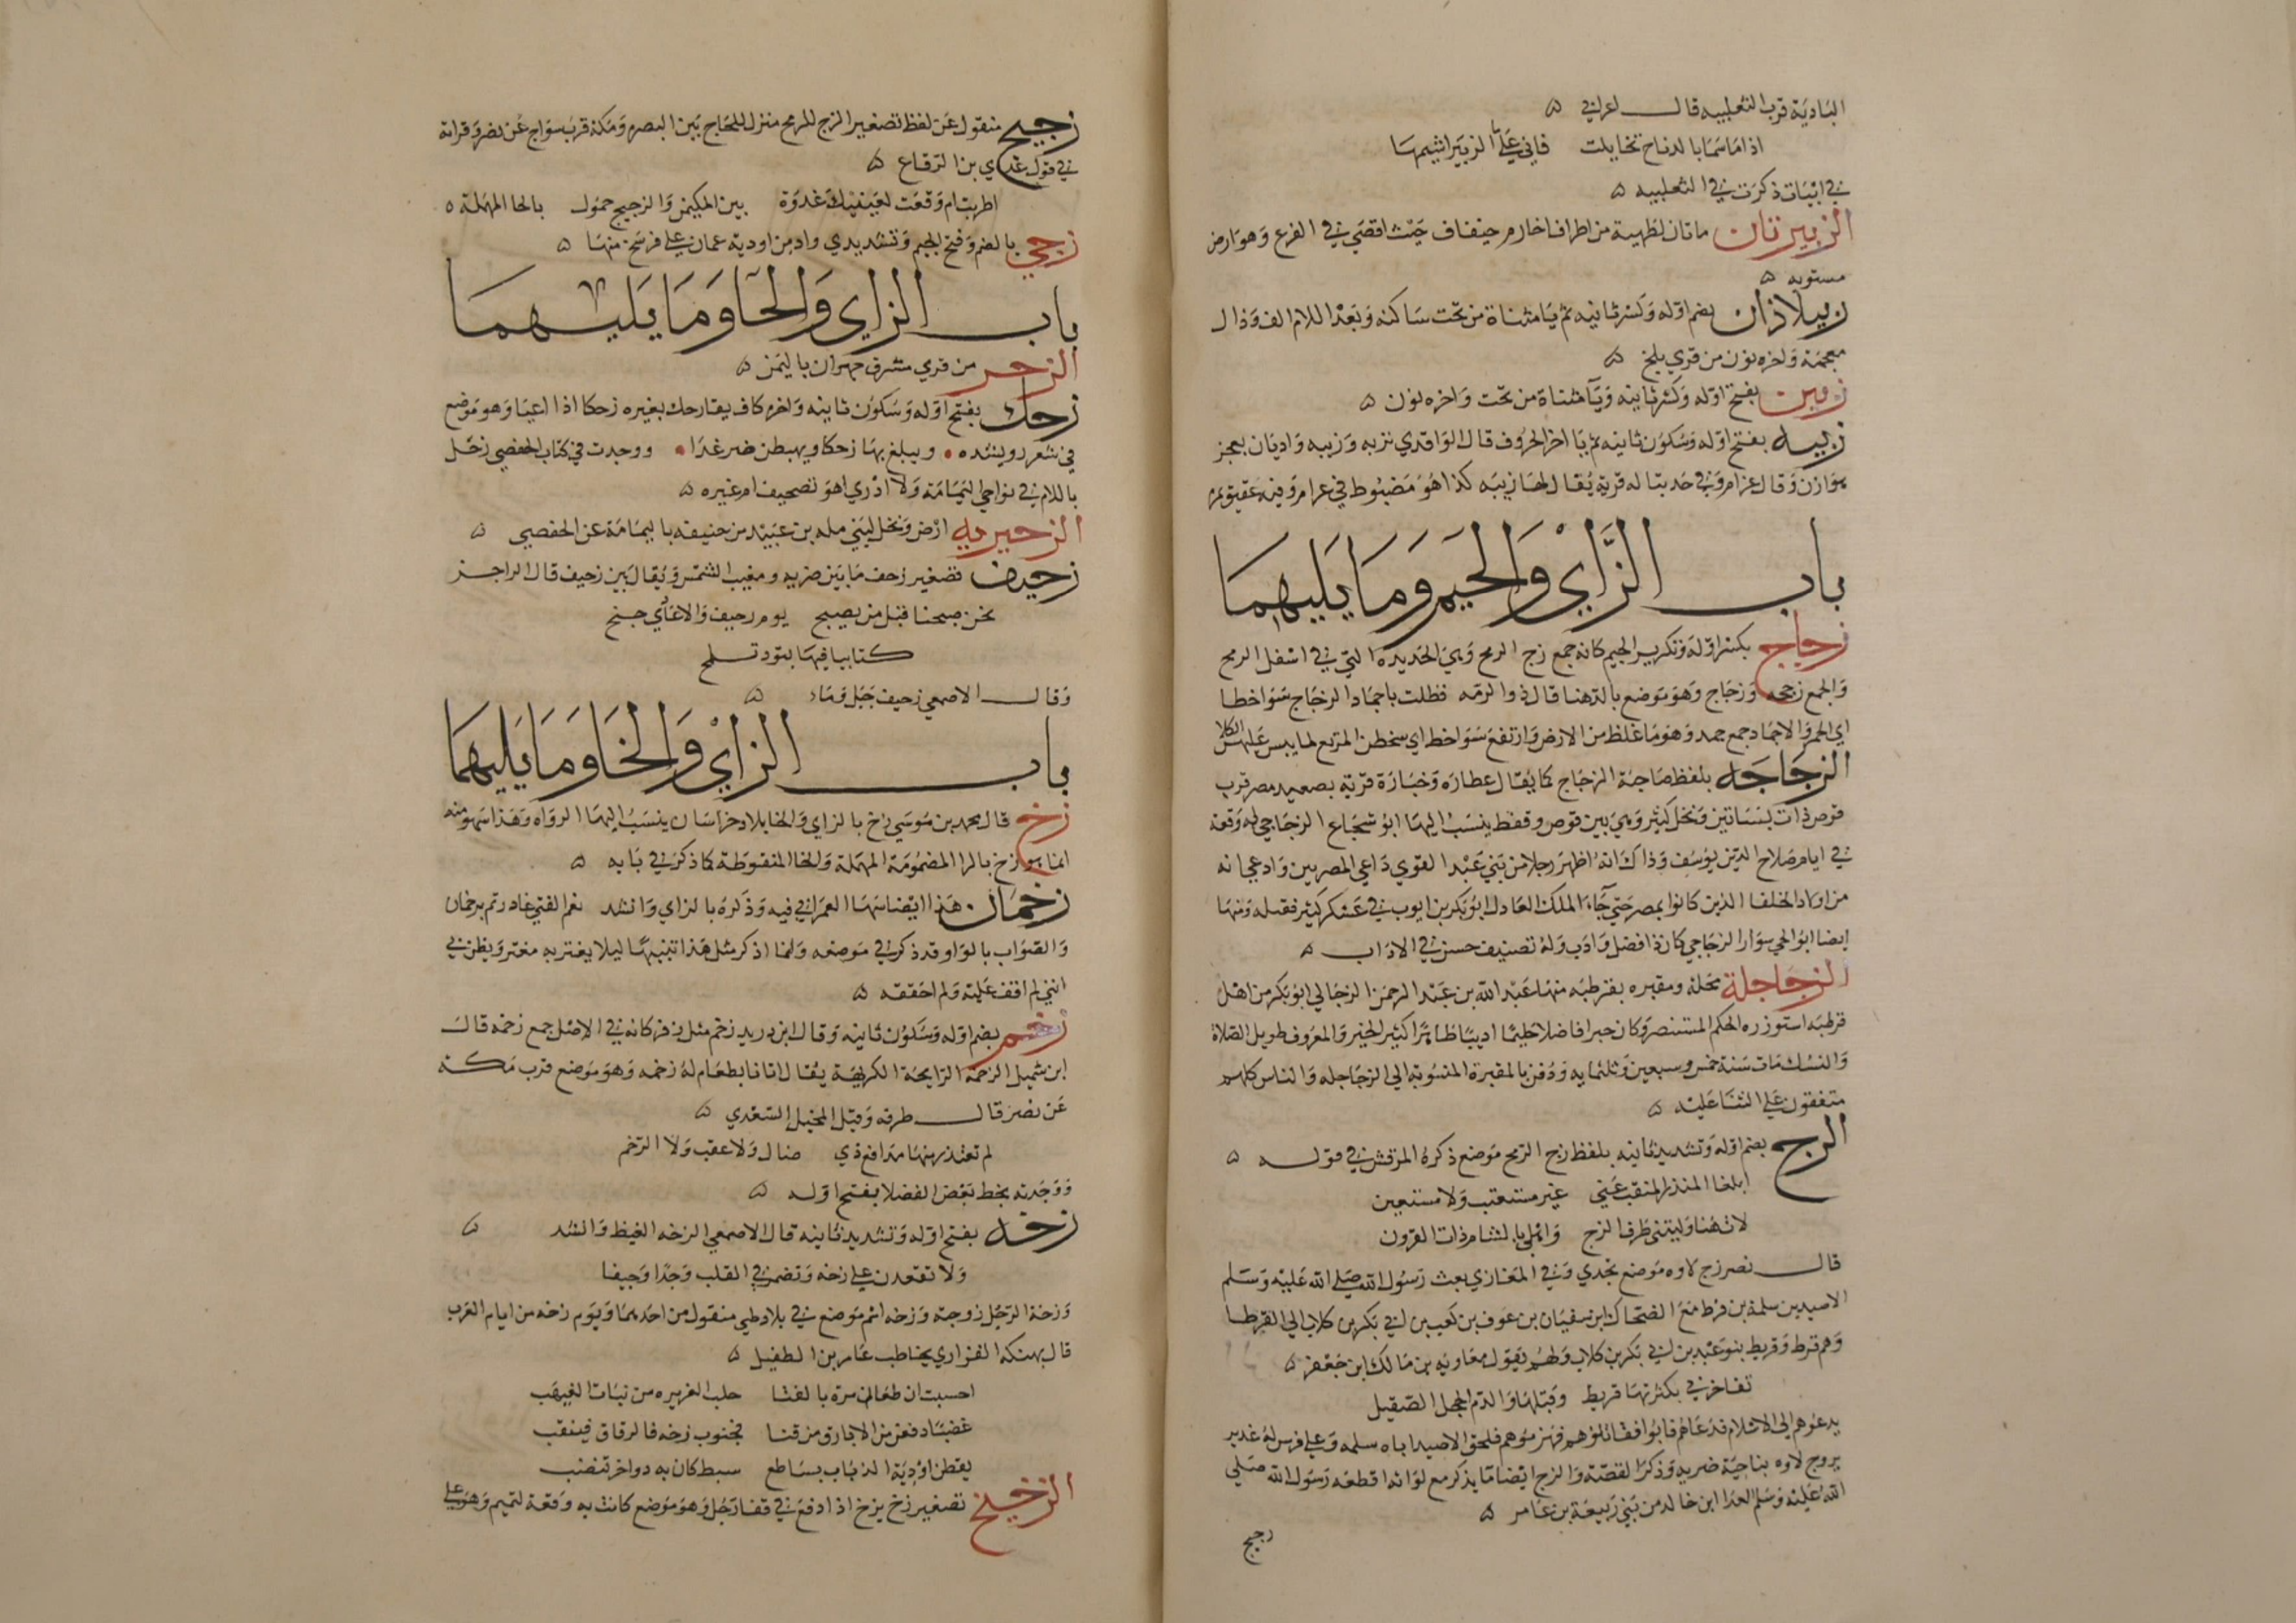 البادية قرب الثعلبيه قال اعرابي ه
اذا ما سما بالدناح تخايلت فاني علي ماء الزبير اشيمها
في ابيات ذكرت في الثعلبيه ه
الزبيرتان ماتان لطهية من اطراف اخارم خيفاف حيث افضي في الفرع وهو ارض
مستويه ه
زبيلاذان بضم اوله وكسر ثانيه ثم يا مثناة من تحت ساكنه وبعد اللام الف وذال
معجمة واخره نون من قري بلخ ه
زبين بفتح اوله وكسر ثانيه ويآ مثناة من تحت واخره نون ه
زبيه بفتح اوله وسكون ثانيه ثم يا اخر الحروف قال الواقدي تربه وزبيه واديان بعجز
هوازن وقال عزام وفي حد تباله قرية يقال لها زبيه كذا هو مضبوط في عرام وفيه عقيق تمره
باب الزاي والجيم وما يليهما
زجاج بكسر اوله وتكرير الجيم كانه جمع زج الرمح وهي الحديده التي في اسفل الرمح
والجمع زججه وزجاج وهو موضع بالدهنا قال ذو الرمه فظلت باجماد الزجاج سواخطا
اي الحمر والاجماد جمع جمد وهو ما غلظ من الارض وارتفع سواخط اي سخطن المرتع لما يبس عليهن الكلا
الزجاجه بلفظ صاحبة الزجاج كما يقال عطاره وخبازة قرية بصعيد مصر قرب
قوص ذات بساتين ونخل كثير وهي بين قوص وقفط ينسب اليها ابو شجاع الزجاجي له وقعه
في ايام صلاح الدين يوسف وذاك انه اظهر رجلا من بني عبد القوي داعي المصريين وادعي انه
من اولاد الخلفا الذين كانوا بمصر حتي جآء الملك العادل ابو بكر بن ايوب في عسكر كثير فقتله ومنها
ايضا ابو الحي سوار الزجاجي كان ذا فضل وادب وله تصنيف حسن في الاداب ه
الزجاجلة محلة ومقبره بقرطبه منها عبد الله بن عبد الرحمن الزجالي ابو بكر من اهل
قرطبه استوزره الحكم المستنصر وكان حبرا فاضلا حليما اديبا طاهرا كثير الخير والمعروف طويل الصلاة
والنسك مات سنة خمس وسبعين وثلثمايه ودفن بالمقبرة المنسوبة الي الزجاجله والناس كلهم
متفقون علي الثنا عليه ه
الزج بضم اوله وتشديد ثانيه بلفظ زج الرمح موضع ذكره المرقش في قوله ه
ابلغا المنذر المنقب عني غير مستعتب ولا مستعين
لات هنا وليتني طرف الزج واهلي بالشام ذات القرون
قال نصر زج لاوه موضع نجدي وفي المغازي بعث رسول الله صلي الله عليه وسلم
الاصيد بن سلمة بن قرط مع الضحاك ابن سفيان بن عوف بن كعب بن ابي بكر بن كلاب الي القرطا
وهم قرط وقريط بنو عبد بن ابي بكر بن كلاب ولهم يقول معاويه بن مالك ابن جعفر ه
تفاخرني بكثرتها قريط وقبلها والد الحجل الصقيل
يدعوهم الي الاسلام فدعاهم فابوا فقاتلوهم فهزموهم فلحق الاصيد اباه سلمه وعلي فرس له غدير
بزوج لاوه بناحية ضريه وذكر القصة والزج ايضا ما يذكر مع لوا انه اقطعه رسول الله صلي
الله عليه وسلم العدا ابن خالد من بني ربيعة بن عامر ه
زجيج
زجيج منقول عن لفظ تصغير الزج للرمح منزل للحاج بين البصره ومكة قرب سواج عن نصر وقراته
في قول عدي بن الرقاع ه
اطربت ام وقعت لعينيك غدوة بين المكيمن والزجيج حمول بالحا المهملة ه
زجي بالضم وفتح الجيم وتشديد ي واد من اودية عمان علي فرسخ منها ه
باب الزاي والحآ وما يليهما
الزحر من قري مشرق جهران باليمن ه
زحك بفتح اوله وسكون ثانيه واخره كاف يقا رحك بعيره زحكا اذا اعيا وهو موضع
في شعر رويشده • ويبلغ بها زحكا ويهبطن ضرغدا • ووجدت في كتاب الحفصي زحل
باللام في نواحي اليمامة ولا ادري اهو تصحيف ام غيره ه
الزحيريه ارض ونخل لبني مله بن عبيد من حنيفه باليمامة عن الحفصي ه
زحيف تصغير زحف ما بين ضريه ومغيب الشمس ويقال بين زحيف قال الراجز
نحن صبحنا قبل من يصبح يوم زحيف والاعادي جنح
كتايبا فيها بنود تلمح
وقال الاصمعي زحيف جبل وماء ه
باب الزاي والخا وما يليهما
زخ قال محمد بن موسي زخ بالزاي والخا بلاد خراسان ينسب اليها الرواه وهذا سهو منه
انما هو زخ بالرا المضمومة المهملة والخا المنقوطة كما ذكر في بابه ه
زخمان هذا ايضا سها العمراني فيه وذكره بالزاي وانشد نعم الفتي غادرتم برخمان
والصواب بالواو قد ذكر في موضعه وانما اذكر مثل هذا تنبيها ليلا يغتر به مغتر ويظن في
انني لم اقف عليه ولم احققه ه
زخم بضم اوله وسكون ثانيه وقال ابن دريد زخم مثل زفر كانه في الاصل جمع زخمه قال
ابن شميل الزخمة الرايحة الكريهة يقال اتانا بطعام له زخمه وهو موضع قرب مكة
عن نصر قال طرفه وقيل المخبل السعدي ه
لم تعتذر منها مدافع ذي ضال ولا عقب ولا الزخم
ووجدته بخط بعض الفضلا بفتح اوله ه
زخه بفتح اوله وتشديد ثانيه قال الاصمعي الزخه الغيظ وانشد ه
ولا تقعدن علي زخه وتضمر في القلب وجدا وجيفا
وزخة الرجل زوجته وزخه اسم موضع في بلاد طي منقول من احدهما ويوم زخه من ايام العرب
قال بهنكه الفزاري يخاطب عامر بن الطفيل ه
احسبت ان طعان مرة بالقنا حلب الغزيره من نبات الغيهب
غضبا دفعن من الابارق من قنا فجنوب زخه فالرقاق فينقب
يقطن اودية الذباب بساطع سبط كان به دواخر تنضب
الزخيخ تصغير زخ يزخ اذا دفع في قفا رجل وهو موضع كانت به وقعة لتميم وهو علي